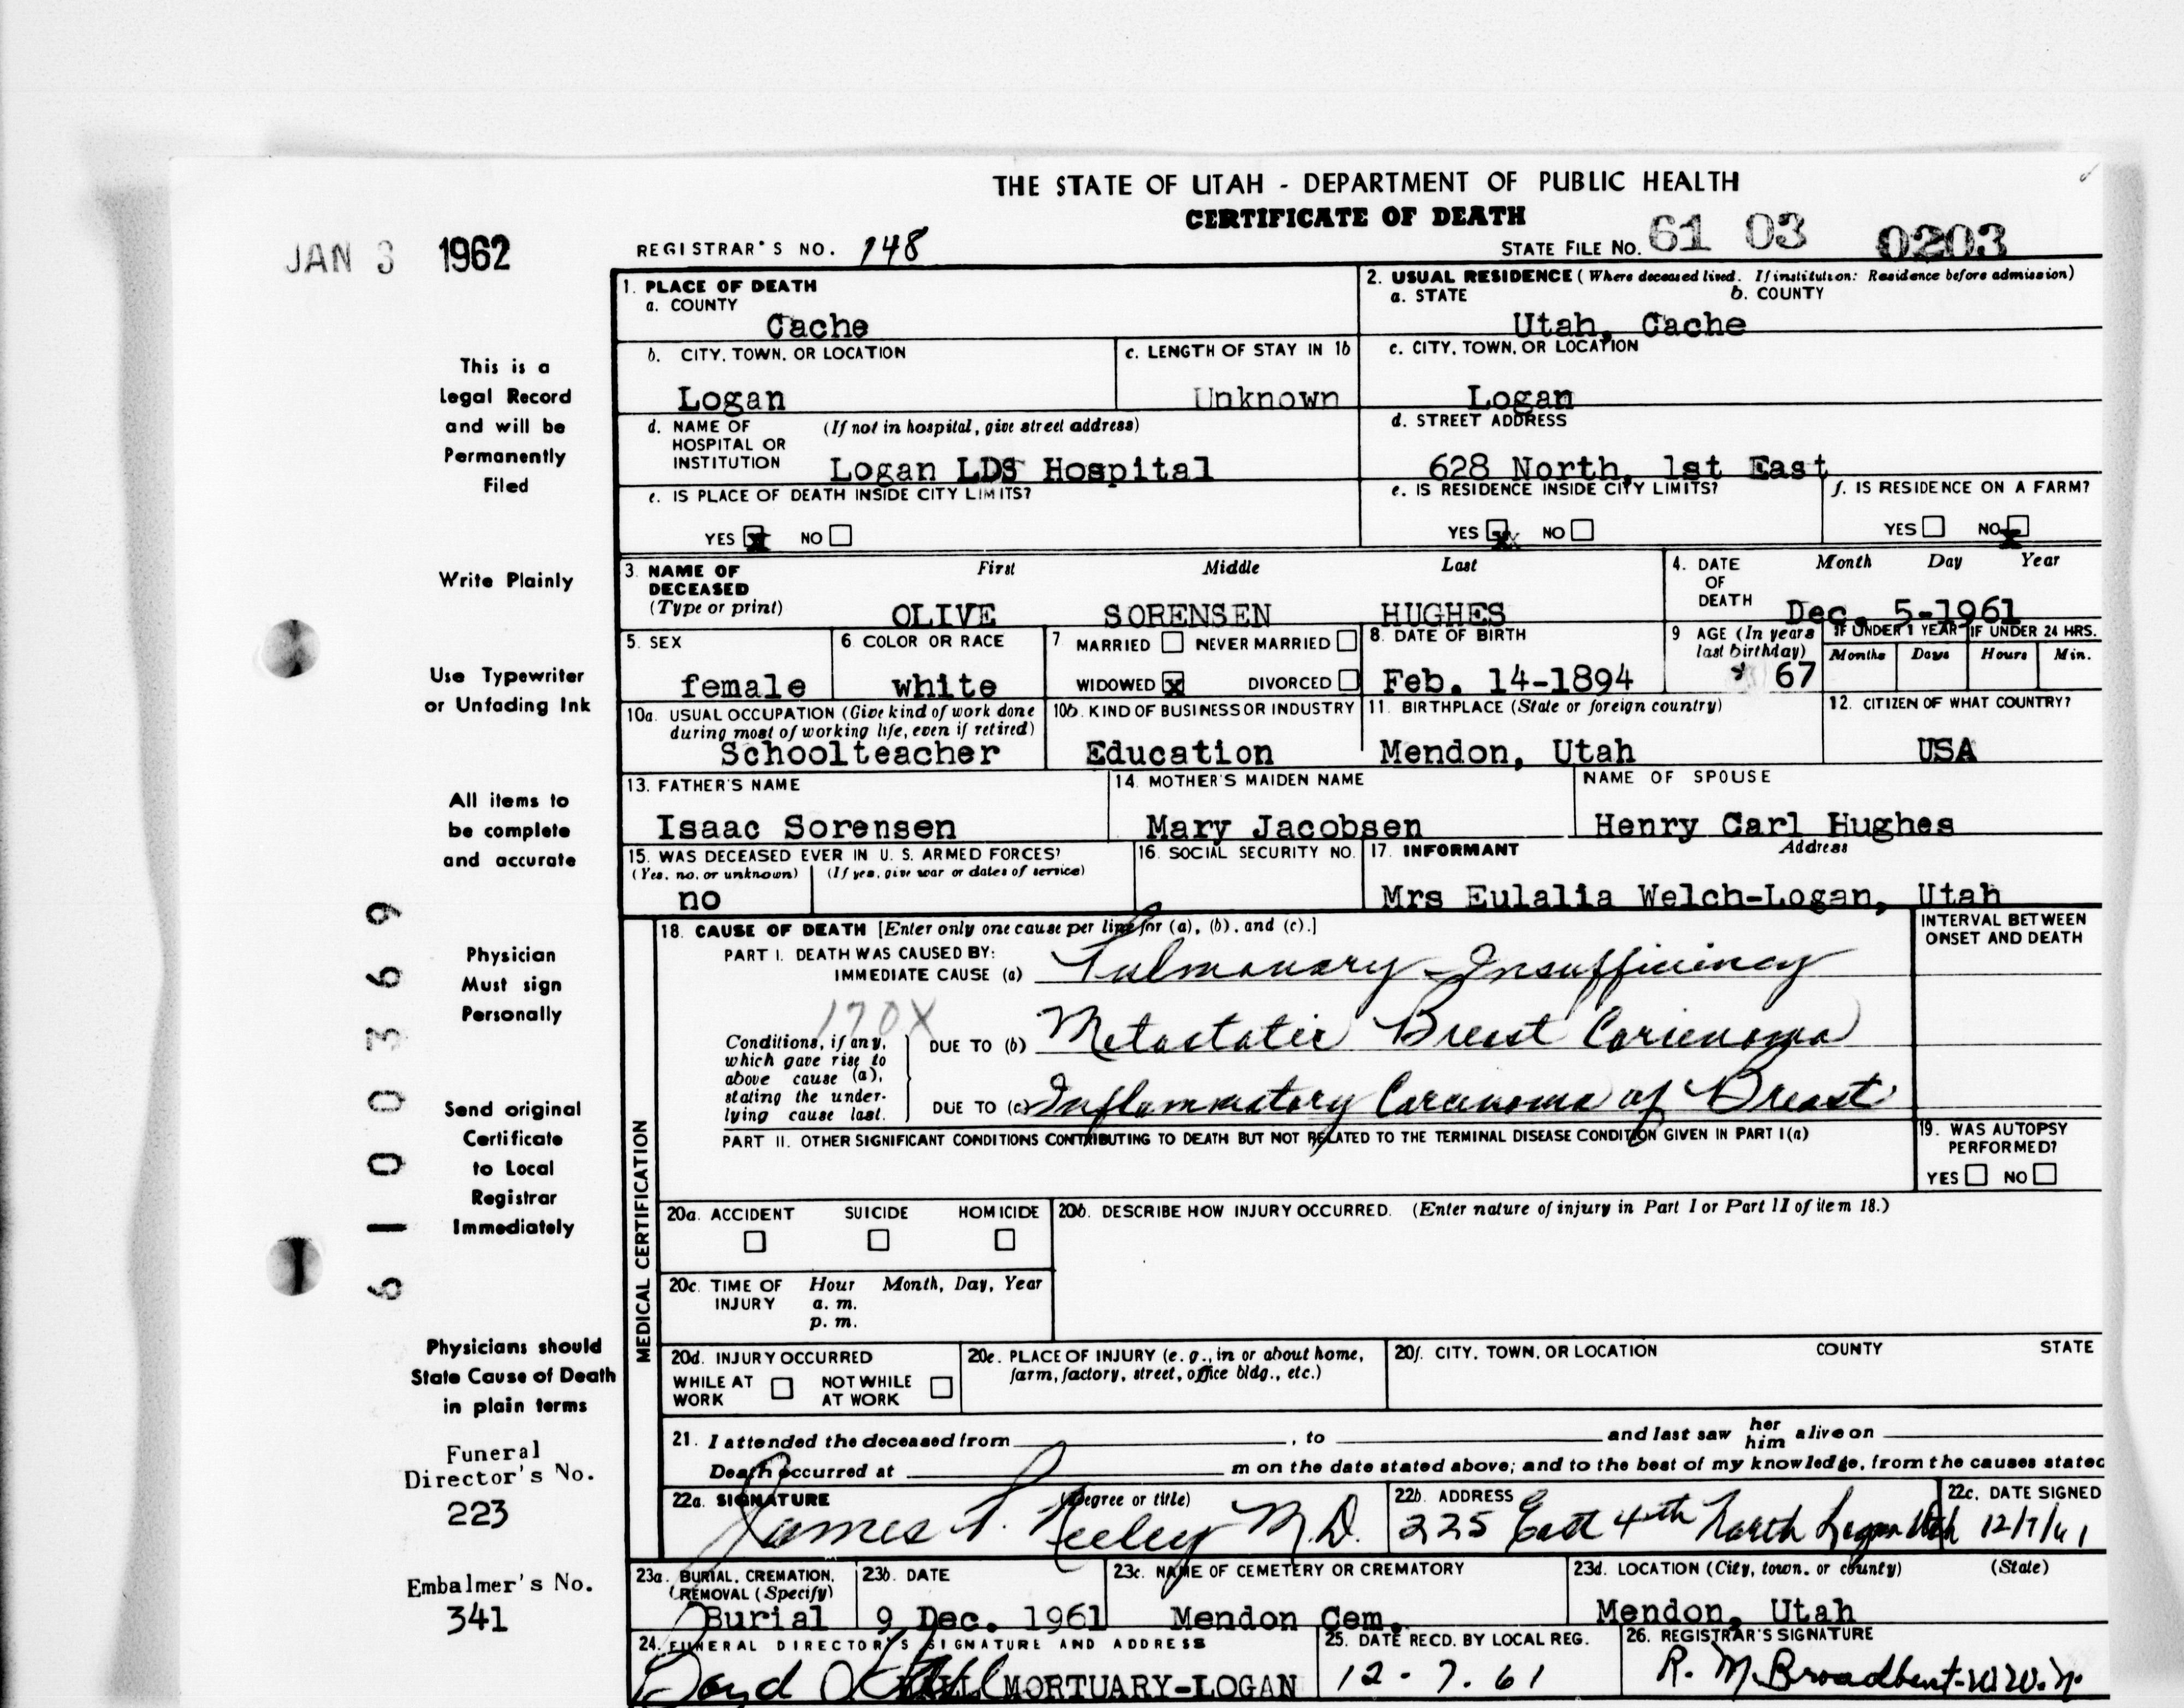 THE STATE OF UTAH - DEPARTMENT OF PUBLIC HEALTH
CERTIFICATE OF DEATH
JAN 3 1962
REGISTRAR'S NO. 148
STATE FILE NO. 61 03 0203
This is a
Legal Record
and will be
Permanently
Filed
Write Plainly
Use Typewriter
or Unfading Ink
All items to
be complete
and accurate
Physician
Must sign
Personally
Send original
Certificate
to Local
Registrar
Immediately
Physicians should
State Cause of Death
in plain terms
Funeral
Director's No.
223
Embalmer's No.
341
6100369
1. PLACE OF DEATH
a. COUNTY
Cache
2. USUAL RESIDENCE (Where deceased lived. If institution: Residence before admission)
a. STATE b. COUNTY
Utah, Cache
b. CITY, TOWN, OR LOCATION
Logan
c. LENGTH OF STAY IN 1b
Unknown
c. CITY, TOWN, OR LOCATION
Logan
d. NAME OF HOSPITAL OR INSTITUTION (If not in hospital, give street address)
Logan LDS Hospital
d. STREET ADDRESS
628 North, 1st East
e. IS PLACE OF DEATH INSIDE CITY LIMITS?
YES X NO
e. IS RESIDENCE INSIDE CITY LIMITS?
YES X NO
f. IS RESIDENCE ON A FARM?
YES NO X
3. NAME OF DECEASED (Type or print)
First Middle Last
OLIVE SORENSEN HUGHES
4. DATE OF DEATH Month Day Year
Dec. 5-1961
5. SEX
female
6 COLOR OR RACE
white
7 MARRIED NEVER MARRIED
WIDOWED X DIVORCED
8. DATE OF BIRTH
Feb. 14-1894
9 AGE (In years last birthday)
67
IF UNDER 1 YEAR IF UNDER 24 HRS.
Months Days Hours Min.
10a. USUAL OCCUPATION (Give kind of work done during most of working life, even if retired)
Schoolteacher
10b. KIND OF BUSINESS OR INDUSTRY
Education
11. BIRTHPLACE (State or foreign country)
Mendon, Utah
12. CITIZEN OF WHAT COUNTRY?
USA
13. FATHER'S NAME
Isaac Sorensen
14. MOTHER'S MAIDEN NAME
Mary Jacobsen
NAME OF SPOUSE
Henry Carl Hughes
15. WAS DECEASED EVER IN U. S. ARMED FORCES?
(Yes, no, or unknown) (If yes, give war or dates of service)
no
16. SOCIAL SECURITY NO.
17. INFORMANT Address
Mrs Eulalia Welch-Logan, Utah
MEDICAL CERTIFICATION
18. CAUSE OF DEATH [Enter only one cause per line for (a), (b), and (c).]
INTERVAL BETWEEN
ONSET AND DEATH
PART I. DEATH WAS CAUSED BY:
IMMEDIATE CAUSE (a) Pulmonary Insufficiency
170X
Conditions, if any, which gave rise to above cause (a), stating the underlying cause last.
DUE TO (b) Metastatic Breast Carcinoma
DUE TO (c) Inflammatory Carcinoma of Breast
PART II. OTHER SIGNIFICANT CONDITIONS CONTRIBUTING TO DEATH BUT NOT RELATED TO THE TERMINAL DISEASE CONDITION GIVEN IN PART I(a)
19. WAS AUTOPSY PERFORMED?
YES NO
20a. ACCIDENT SUICIDE HOMICIDE
20b. DESCRIBE HOW INJURY OCCURRED. (Enter nature of injury in Part I or Part II of item 18.)
20c. TIME OF INJURY Hour Month, Day, Year
a. m.
p. m.
20d. INJURY OCCURRED
WHILE AT WORK NOT WHILE AT WORK
20e. PLACE OF INJURY (e. g., in or about home, farm, factory, street, office bldg., etc.)
20f. CITY, TOWN, OR LOCATION COUNTY STATE
21. I attended the deceased from , to and last saw her him alive on
Death occurred at m on the date stated above; and to the best of my knowledge, from the causes stated
22a. SIGNATURE (Degree or title)
James P. Neeley M.D.
22b. ADDRESS
225 East 4th North Logan Utah
22c. DATE SIGNED
12/7/61
23a. BURIAL, CREMATION, REMOVAL (Specify)
Burial
23b. DATE
9 Dec. 1961
23c. NAME OF CEMETERY OR CREMATORY
Mendon Cem.
23d. LOCATION (City, town, or county) (State)
Mendon, Utah
24. FUNERAL DIRECTOR'S SIGNATURE AND ADDRESS
Boyd MORTUARY-LOGAN
25. DATE RECD. BY LOCAL REG.
12-7-61
26. REGISTRAR'S SIGNATURE
R. M. Broadbent